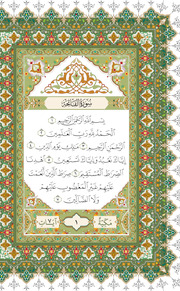 سُورَةُ الفَاتِحَةِ
بِسْمِ اللَّهِ الرَّحْمَٰنِ الرَّحِيمِ ١
الْحَمْدُ لِلَّهِ رَبِّ الْعَالَمِينَ ٢
الرَّحْمَٰنِ الرَّحِيمِ ٣ مَالِكِ يَوْمِ الدِّينِ ٤
إِيَّاكَ نَعْبُدُ وَإِيَّاكَ نَسْتَعِينُ ٥ اهْدِنَا
الصِّرَاطَ الْمُسْتَقِيمَ ٦ صِرَاطَ الَّذِينَ أَنْعَمْتَ
عَلَيْهِمْ غَيْرِ الْمَغْضُوبِ عَلَيْهِمْ
وَلَا الضَّالِّينَ ٧
مكية ١